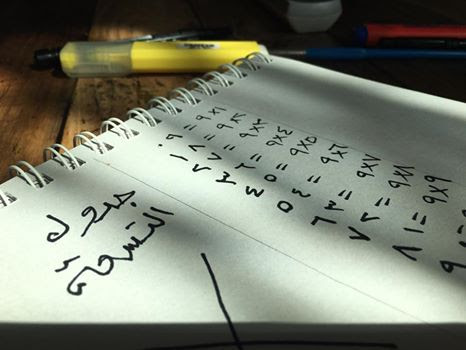 جدول
التسعة
٩×١ = ٠٩
٩×٢ = ١٨
٩×٣ = ٢٧
٩×٤ = ٣٦
٩×٥ = ٤٥
٩×٦ = ٥٤
٩×٧ = ٦٣
٩×٨ = ٧٢
٩×٩ = ٨١